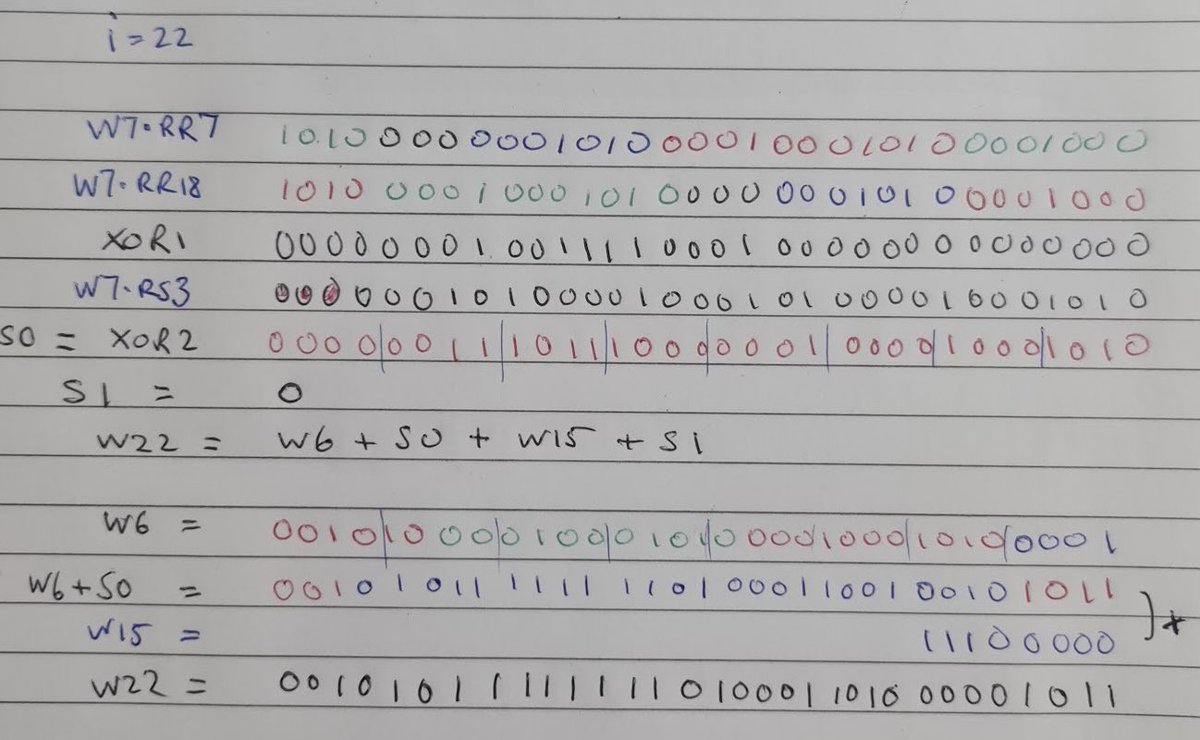 i = 22
W7·RR7 10100000001010000100010100001000
W7·RR18 10100001000101000000010100001000
XOR1 00000001001111000100000000000000
W7·RS3 00000010100001000101000010001010
S0 = XOR2 0000|0011|1011|1000|0001|0000|1000|1010
S1 = 0
W22 = W6 + S0 + W15 + S1
W6 = 0010|1000|0100|0101|0000|1000|1010|0001
W6+S0 = 00101011111111010001100100101011
W15 = 11100000 } +
W22 = 00101011111111010001101000001011